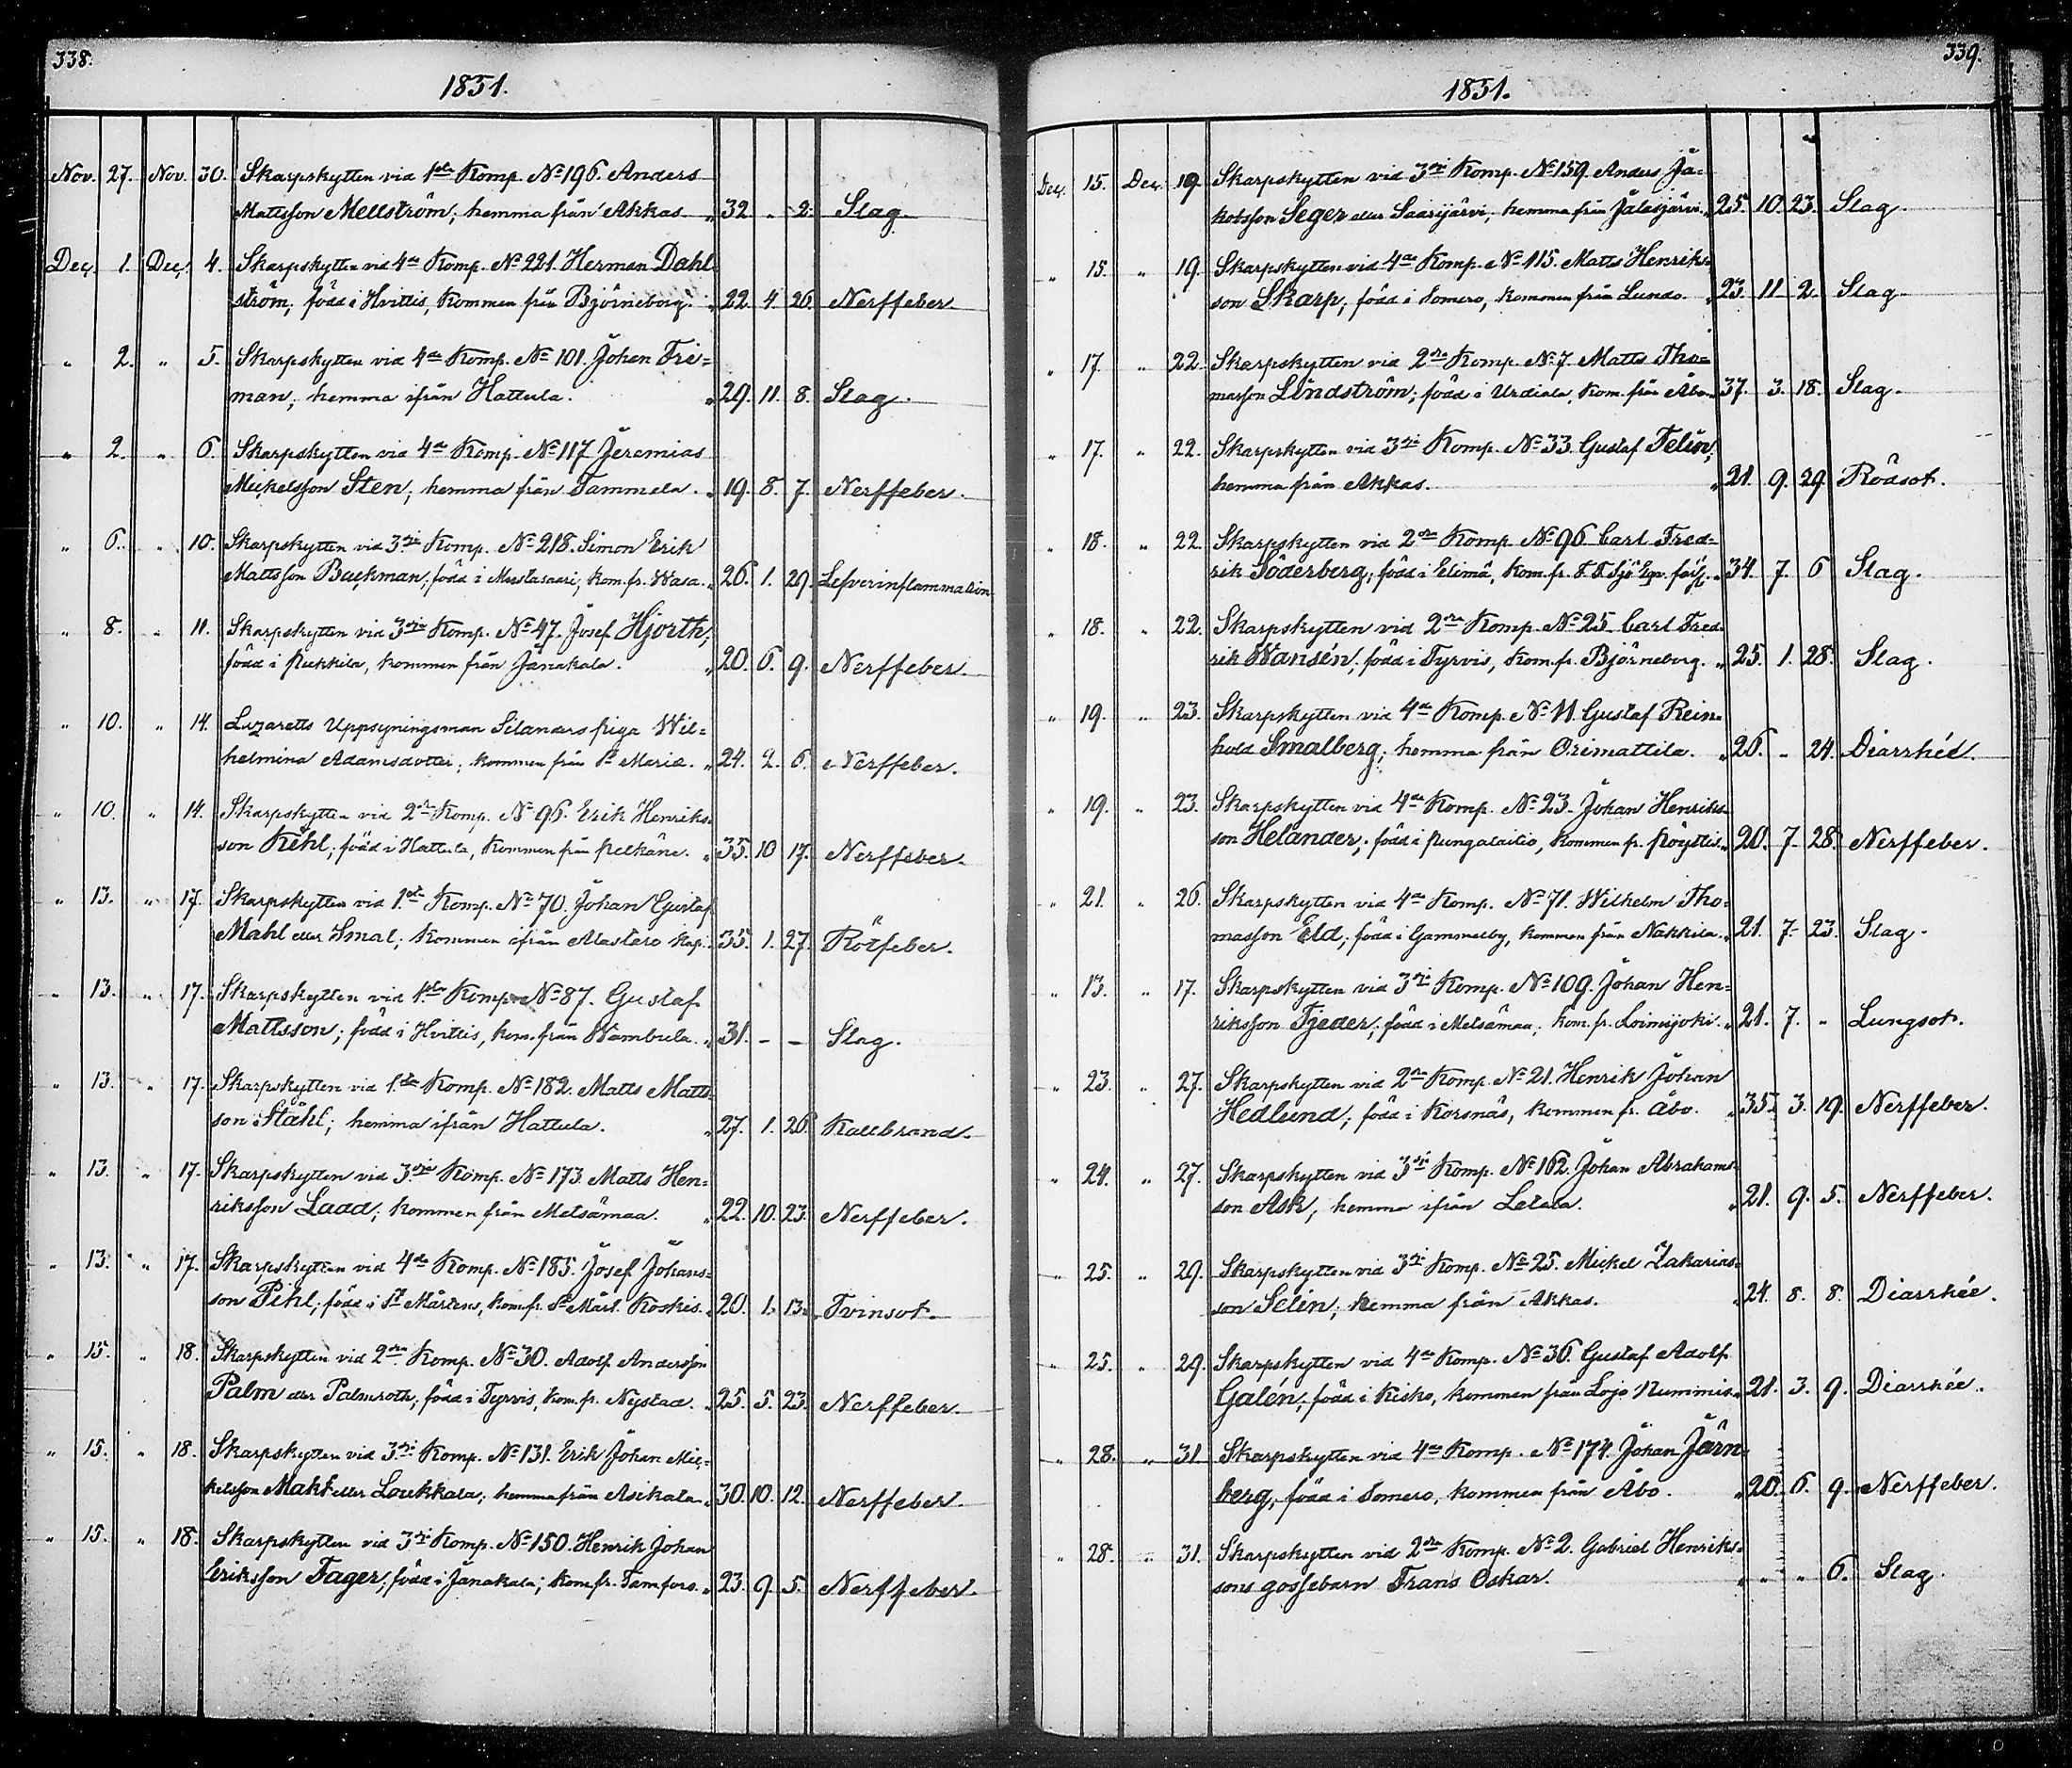 338.
1851.
Nov. 27. Nov. 30. Skarpskytten vid 1sta Komp. No 196. Anders
Mattsson Mellström; hemma från Akkas. " 32. - 2. Slag.
Dec. 1. Dec. 4. Skarpskytten vid 4de Komp. No 221. Herman Dahl
ström; född i Hvittis, kommen från Björneborg. " 22. 4. 26. Nerffeber.
" 2. " 5. Skarpskytten vid 4de Komp. No 101. Johan Fri=
man; hemma ifrån Hattula. " 29. 11. 8. Slag.
" 2. " 6. Skarpskytten vid 4de Komp. No 117 Jeremias
Mickelsson Sten; hemma från Tammela. " 19. 8. 7. Nerffeber.
" 6. " 10. Skarpskytten vid 3dje Komp. No 218. Simon Erik
Mattsson Backman; född i Mustasaari; kom. fr. Wasa. " 26. 1. 29. Lefverinflammation
" 8. " 11. Skarpskytten vid 3dje Komp. No 47. Josef Hjorth;
född i Pukkila, kommen från Janakala. " 20. 6. 9. Nerffeber.
" 10. " 14. Lazaretts Uppsyningsman Silanders piga Wil=
helmina Adamsdotter; kommen från St Mariæ. " 24. 2. 6. Nerffeber.
" 10. " 14. Skarpskytten vid 2dra Komp. No 96. Erik Henriks=
son Kihl; född i Hattula, kommen från Pelkäne. " 35. 10 17. Nerffeber.
" 13. " 17. Skarpskytten vid 1sta Komp. No 70. Johan Gustaf
Mahl eller Smal; kommen ifrån Alastaro Kap. 35. 1. 27. Rötfeber.
" 13. " 17. Skarpskytten vid 1sta Komp. No 87. Gustaf
Mattsson; född i Hvittis, kom. från Wambula. " 31. - - Slag.
" 13. " 17. Skarpskytten vid 1sta Komp. No 182. Matts Matts=
son Ståhl; hemma ifrån Hattula. " 27. 1. 26. Kallbrand.
" 13. " 17. Skarpskytten vid 3dje Komp. No 173. Matts Hen=
riksson Ladd; kommen från Metsämaa. " 22. 10. 23. Nerffeber.
" 13. " 17. Skarpskytten vid 4de Komp. No 185. Josef Johans=
son Pihl; född i St Mårtens, kom. fr. St Mårt. Koskis. 20. 1. 13. Tvinsot.
" 15. " 18. Skarpskytten vid 2dra Komp. No 30. Adolf Andersson
Palm eller Palmroth; född i Tyrvis, kom. fr. Nystad. " 25. 5. 23. Nerffeber.
" 15. " 18. Skarpskytten vid 3dje Komp. No 131. Erik Johan Mic=
kelsson Makt eller Loukkala; hemma från Asikala. " 30. 10. 12. Nerffeber.
" 15. " 18. Skarpskytten vid 3dje Komp. No 150. Henrik Johan
Eriksson Fager; född i Janakala; kom. fr. Tamfors. " 23. 9. 5. Nerffeber.
339.
1851.
Dec. 15. Dec. 19. Skarpskytten vid 3dje Komp. No 159. Anders Ja=
kobsson Seger eller Saarijärvi; hemma från Jalasjärvi. 25. 10. 23. Slag.
" 15. " 19. Skarpskytten vid 4de Komp. No 115. Matts Henriks=
son Skarp; född i Somero, kommen från Lundo. " 23. 11. 2. Slag.
" 17. " 22. Skarpskytten vid 2dra Komp. No 7. Matts Tho=
masson Lindström; född i Urdiala, kom. från Åbo. " 37. 3. 18. Slag.
" 17. " 22. Skarpskytten vid 3dje Komp. No 33. Gustaf Felin;
hemma från Akkas. " 21. 9. 29. Rödsot.
" 18. " 22. Skarpskytten vid 2dra Komp. No 96 Carl Fred=
rik Söderberg; född i Elimä, kom. fr. F. F. Sjö Eqv. " 34. 7. 6 Slag.
" 18. " 22. Skarpskytten vid 2dra Komp. No 25. Carl Fred
rik Wansén; född i Tyrvis, kom. fr. Björneborg. " 25. 1. 28. Slag.
" 19. " 23. Skarpskytten vid 4de Komp. No 11. Gustaf Rein=
hold Smalberg; hemma från Orimattila. " 26. - 24. Diarrhée.
" 19. " 23. Skarpskytten vid 4de Komp. No 23. Johan Henriks=
son Helander; född i Pungalaitio, kommen fr. Pöyttis. " 20. 7. 28. Nerffeber.
" 21. " 26. Skarpskytten vid 4de Komp. No 71. Wilhelm Tho=
masson Eld; född i Gammelby, kommen från Nakkila. " 21. 7. 23. Slag.
" 13. " 17. Skarpskytten vid 3dje Komp. No 109. Johan Hen=
riksson Fjeder; född i Metsämaa; kom. fr. Loimijoki. " 21. 7. " Lungsot.
" 23. " 27. Skarpskytten vid 2dra Komp. No 21. Henrik Johan
Hedlund; född i Korsnäs, kommen fr. Åbo. " 35. 3. 19. Nerffeber.
" 24. " 27. Skarpskytten vid 3dje Komp. No 162. Johan Abrahams=
son Ask; hemma ifrån Letala. " 21. 9. 5. Nerffeber.
" 25. " 29. Skarpskytten vid 3dje Komp. No 25. Mickel Zakarias=
son Selin; hemma från Akkas. " 24. 8. 8. Diarrhée.
" 25. " 29. Skarpskytten vid 4de Komp. No 36. Gustaf Adolf
Galén; född i Kisko, kommen från Lojo Nummis. " 21. 3. 9. Diarrhée.
" 28. " 31. Skarpskytten vid 4de Komp. No 174. Johan Järn=
berg; född i Somero, kommen från Åbo. " 20. 6. 9. Nerffeber.
" 28. " 31. Skarpskytten vid 2dra Komp. No 2. Gabriel Henriks=
sons gossebarn Frans Oskar. " " " 6. Slag.